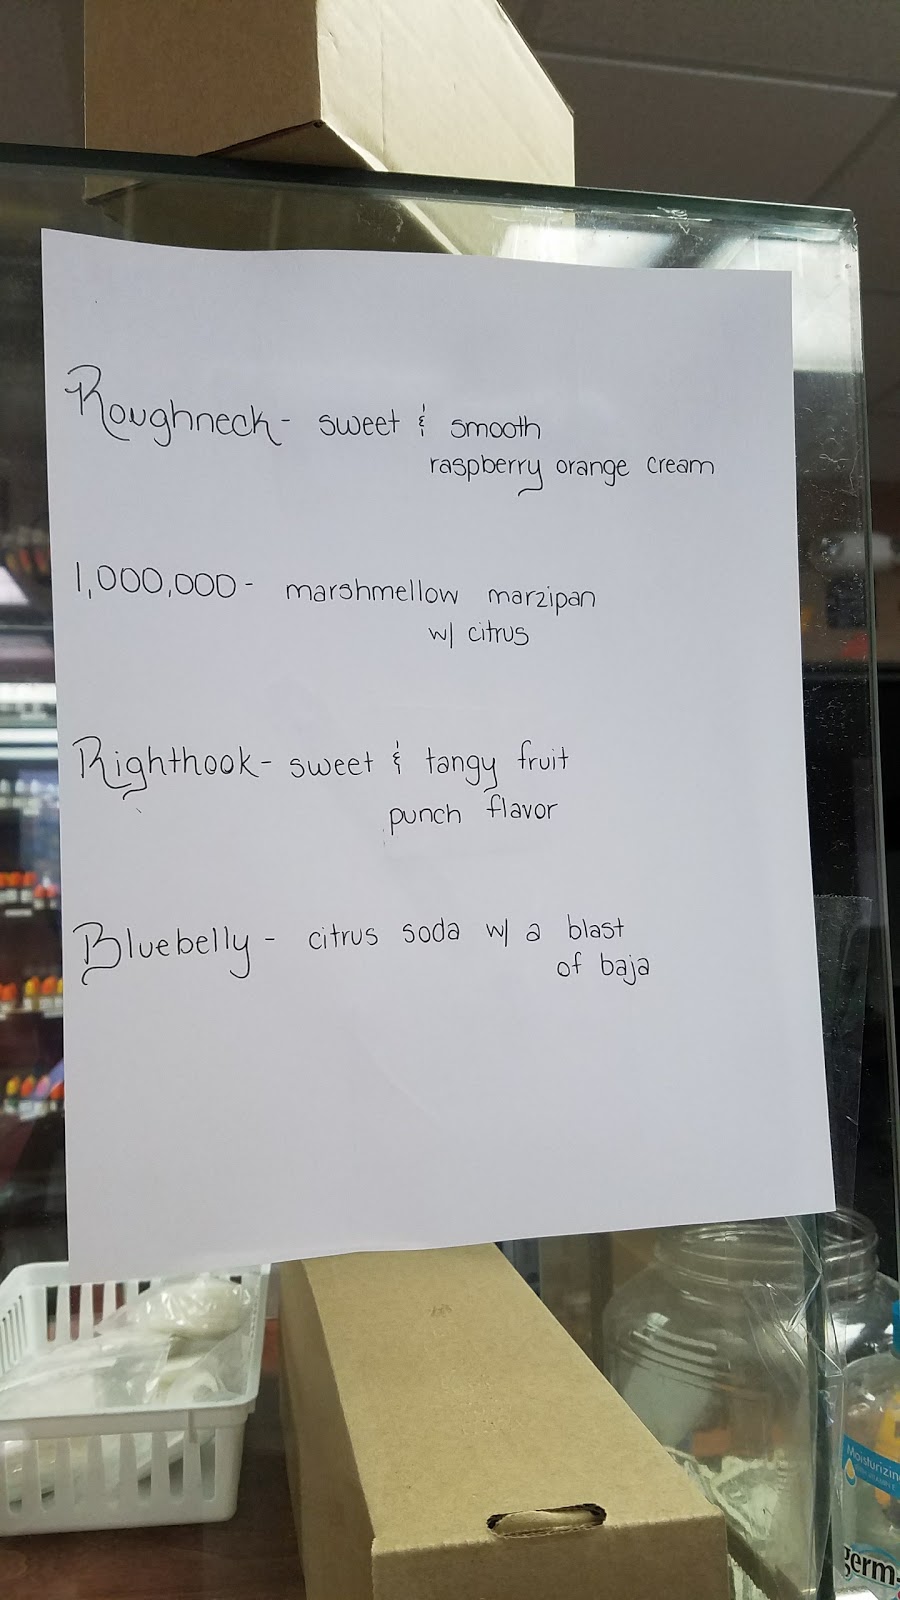 Roughneck - sweet & smooth
raspberry orange cream
1,000,000 - marshmellow marzipan
w/ citrus
Righthook - sweet & tangy fruit
punch flavor
Bluebelly - citrus soda w/ a blast
of baja
Moisturizin
germ-